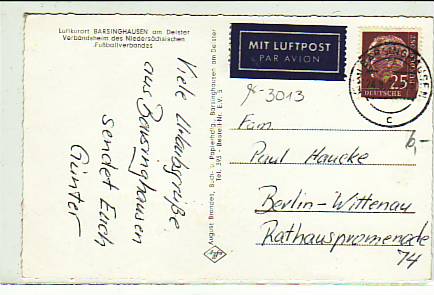 Luftkurort BARSINGHAUSEN am Deister
Verbandsheim des Niedersächsischen
Fußballverbandes
Viele Urlaubsgrüße
aus Barsinghausen
sendet Euch
Günter
August Brenzel, Buch- u. Papierhdlg., Barsinghausen am Deister
Tel. 395 - Bestell-Nr. E.V. 3
MIT LUFTPOST
PAR AVION
BARSINGHAUSEN
c
25
DEUTSCHE
gk-3013
6,-
Fam.
Paul Haucke
Berlin-Wittenau
Rathauspromenade
74